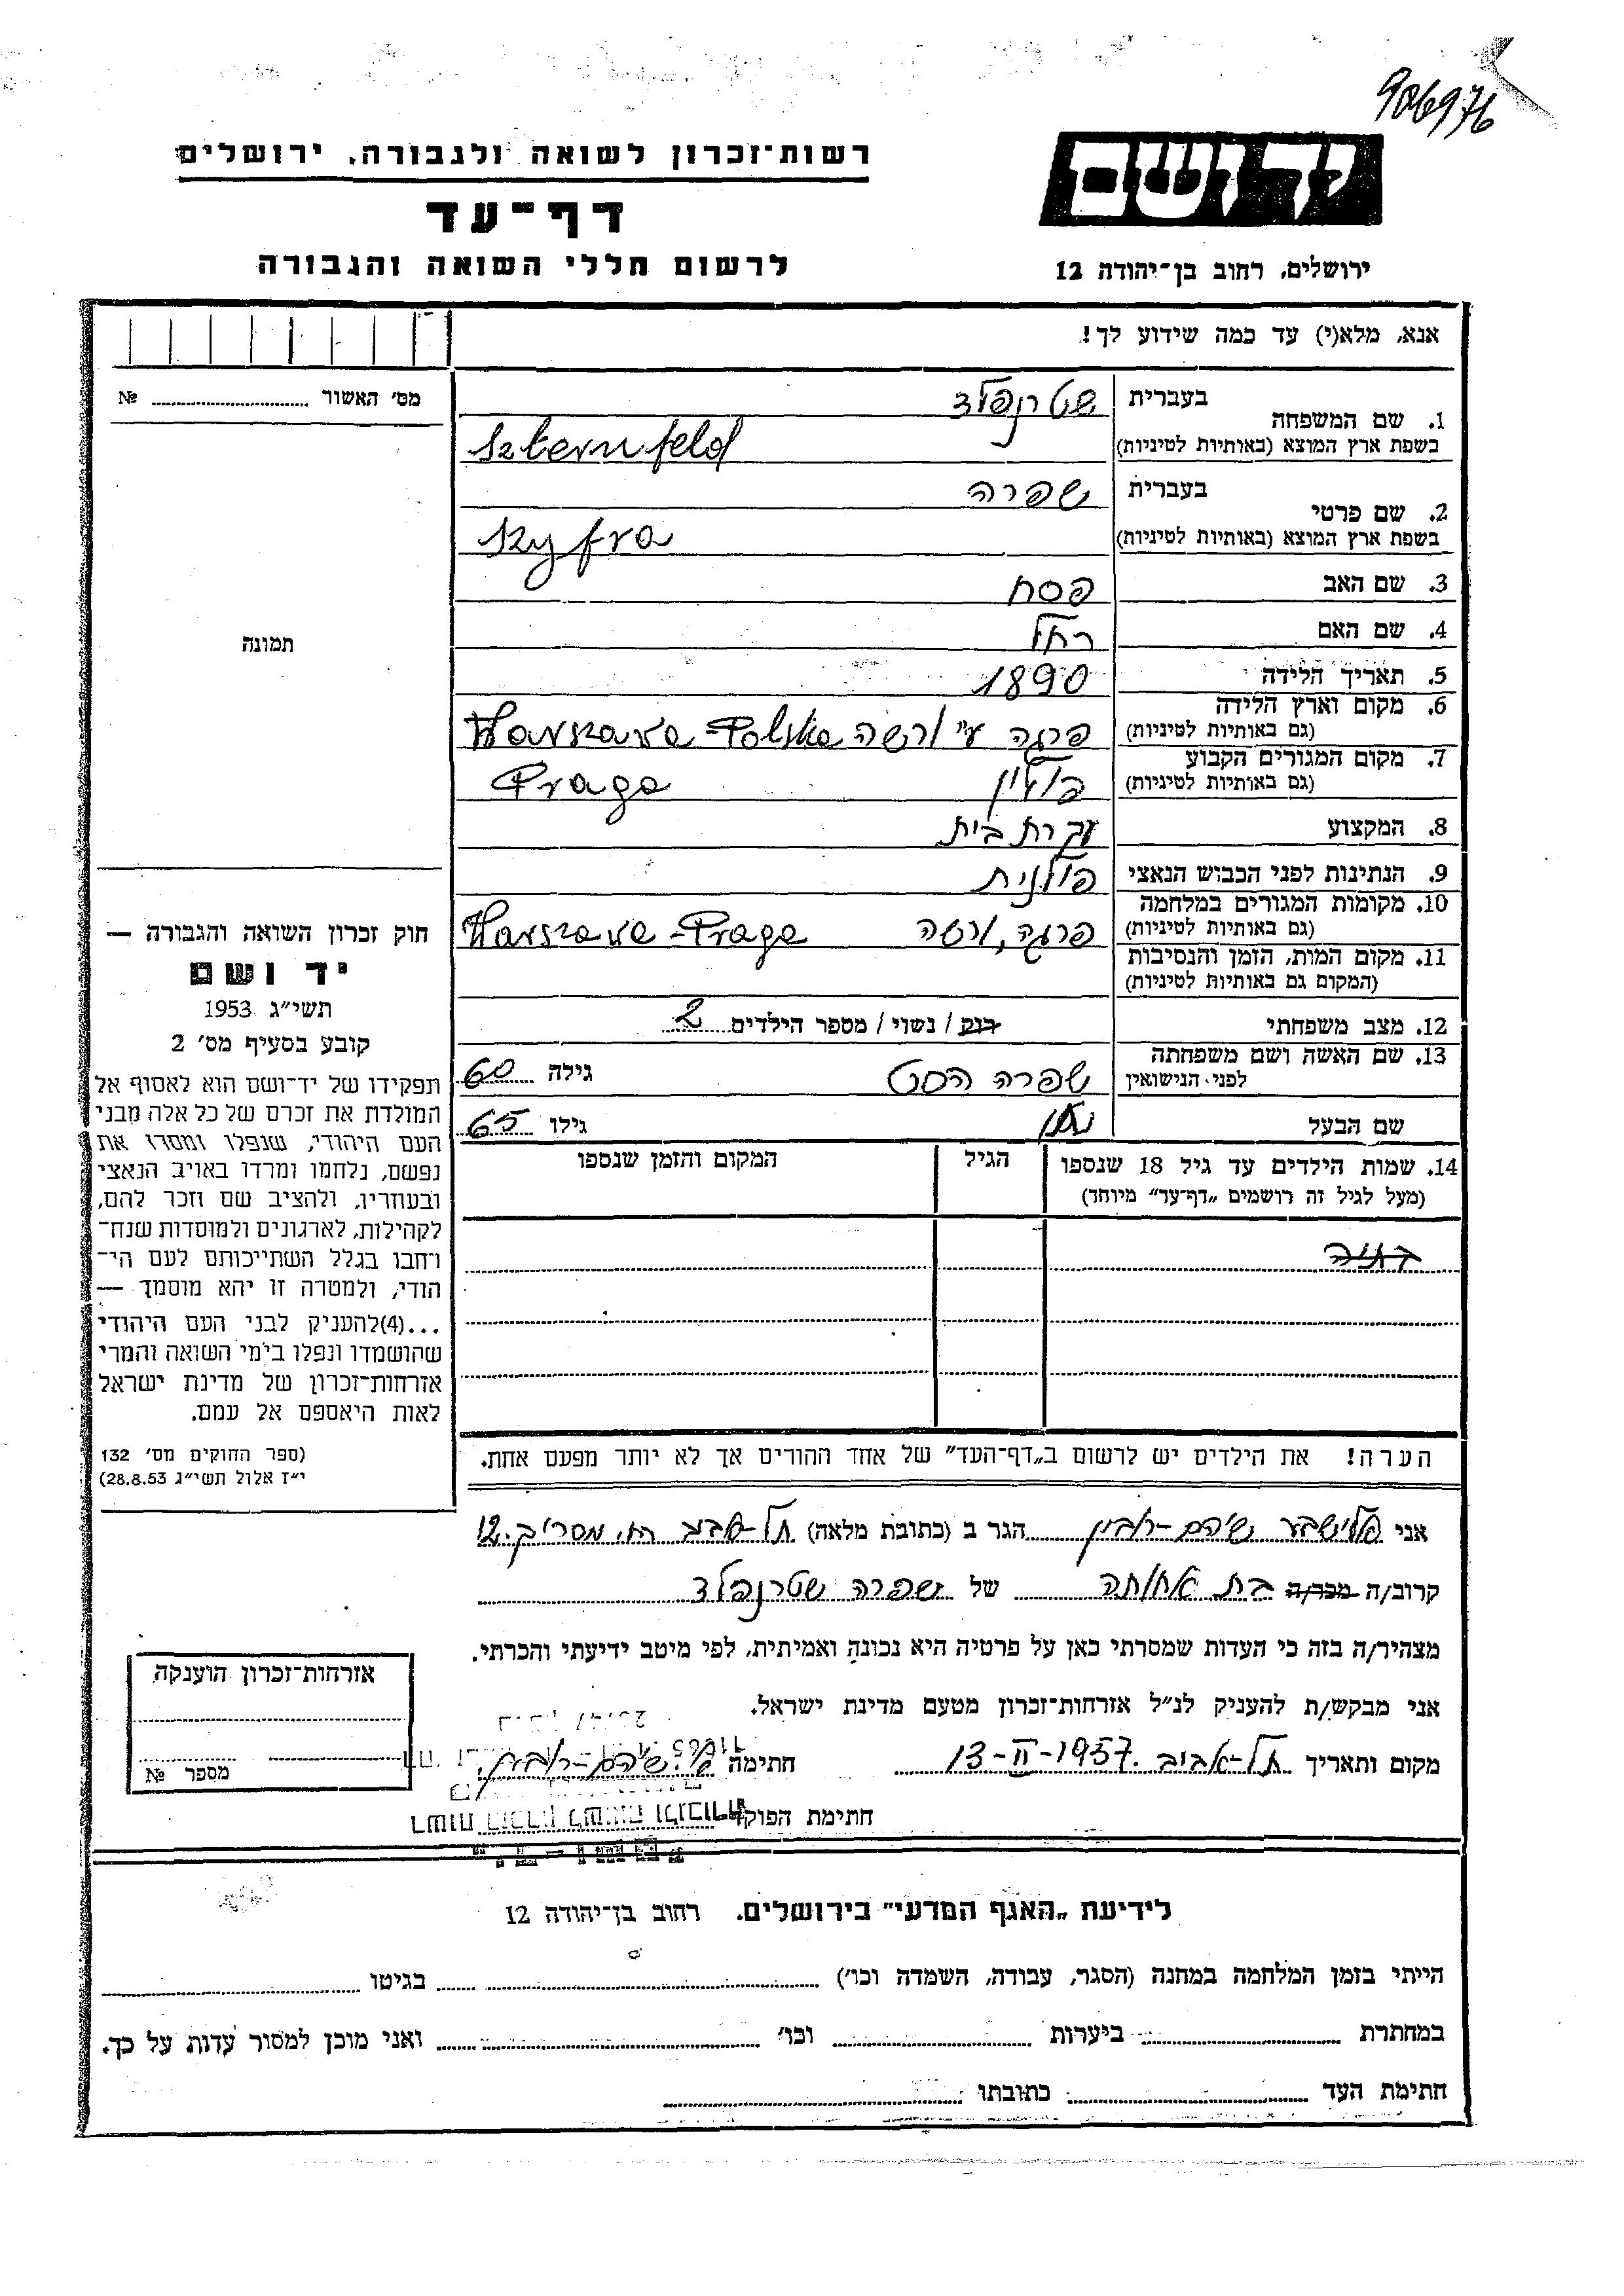 906976
רשות־זכרון לשואה ולגבורה, ירושלים
דף־עד
לרשום חללי השואה והגבורה
יד ושם
ירושלים, רחוב בן־יהודה 12
אנא, מלא(י) עד כמה שידוע לך!
מס׳ האשור № 
1. שם המשפחה בעברית שטרנפלד
בשפת ארץ המוצא (באותיות לטיניות) Szternfeld
2. שם פרטי בעברית שפרה
בשפת ארץ המוצא (באותיות לטיניות) Szyfra
3. שם האב פסח
4. שם האם רחל
5. תאריך הלידה 1890
6. מקום וארץ הלידה (גם באותיות לטיניות) פרגה ע״י ורשה Warszawa-Polska
7. מקום המגורים הקבוע (גם באותיות לטיניות) פולין Praga
8. המקצוע עקרת בית
9. הנתינות לפני הכבוש הנאצי פולנית
10. מקומות המגורים במלחמה (גם באותיות לטיניות) פרגה, ורשה Warszawa-Praga
11. מקום המות, הזמן והנסיבות (המקום גם באותיות לטיניות)
12. מצב משפחתי רוק / נשוי / מספר הילדים 2
13. שם האשה ושם משפחתה לפני הנישואין שפרה הסט גילה 60
שם הבעל גילו 65
14. שמות הילדים עד גיל 18 שנספו (מעל לגיל זה רושמים „דף־עד״ מיוחד) הגיל המקום והזמן שנספו
הערה! את הילדים יש לרשום ב„דף־העד״ של אחד ההורים אך לא יותר מפעם אחת.
תמונה
חוק זכרון השואה והגבורה —
יד ושם
תשי״ג 1953
קובע בסעיף מס׳ 2
תפקידו של יד־ושם הוא לאסוף אל
המולדת את זכרם של כל אלה מבני
העם היהודי, שנפלו ומסרו את
נפשם, נלחמו ומרדו באויב הנאצי
ובעוזריו, ולהציב שם וזכר להם,
לקהילות, לארגונים ולמוסדות שנח־
רחבו בגלל השתייכותם לעם הי־
הודי, ולמטרה זו יהא מוסמך —
...(4)להעניק לבני העם היהודי
שהושמדו ונפלו בימי השואה והמרי
אזרחות־זכרון של מדינת ישראל
לאות היאספם אל עמם.
(ספר החוקים מס׳ 132
י״ז אלול תשי״ג 28.8.53)
אני אלישבע שיהם-רובין הגר ב (כתובת מלאה) תל-אביב רח. מסריק 12
קרוב/ה מכר/ה בת אחותה של שפרה שטרנפלד
מצהיר/ה בזה כי העדות שמסרתי כאן על פרטיה היא נכונה ואמיתית, לפי מיטב ידיעתי והכרתי.
אני מבקש/ת להעניק לנ״ל אזרחות־זכרון מטעם מדינת ישראל.
מקום ותאריך תל-אביב 13-II-1957 חתימה א. שיהם-רובין
חתימת הפוקד
רשות הזכרון לשואה ולגבורה
אזרחות־זכרון הוענקה
מספר №
לידיעת „האגף המדעי״ בירושלים. רחוב בן־יהודה 12
הייתי בזמן המלחמה במחנה (הסגר, עבודה, השמדה וכו׳) בגיטו
במחתרת ביערות וכו׳ ואני מוכן למסור עדות על כך.
חתימת העד כתובתו